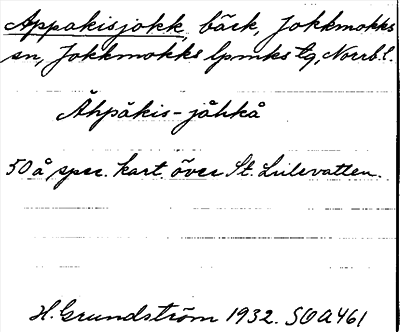 Appakisjokk, bäck, Jokkmokks
sn, Jokkmokks lpmks tg, Norrb. l.
Åhpåkis-jåhkå
50 å spec. kart. över St. Lulevatten.
H. Grundström 1932. SOA461